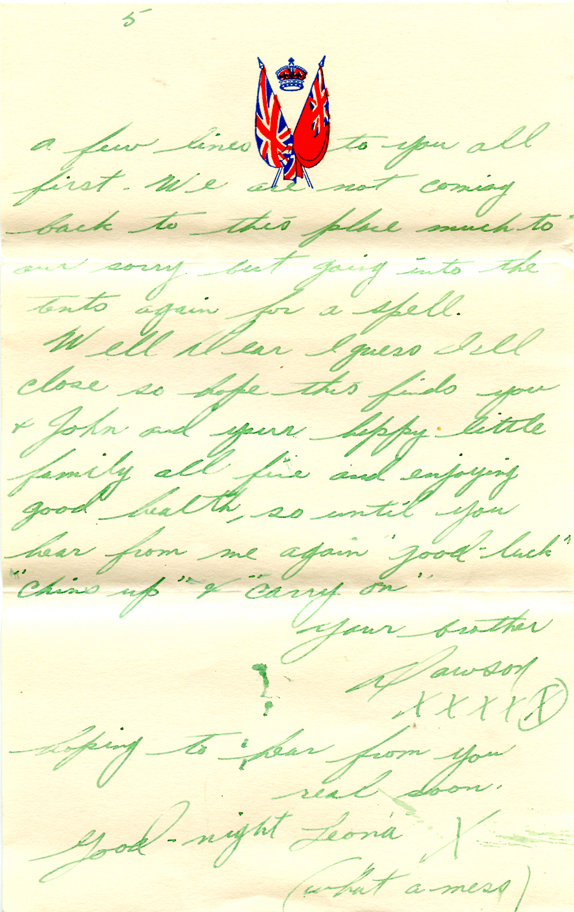 5
a few lines to you all
first. We are not coming
back to this place much to
our sorry but going into the
tents again for a spell.
Well Dear I guess I'll
close so hope this finds you
& John and your happy little
family all fine and enjoying
good health, so until you
hear from me again "good-luck"
"chins up" & "carry on"
Your brother
Dawson
XXXXX
hoping to hear from you
real soon.
Good-night Leona X
(what a mess)